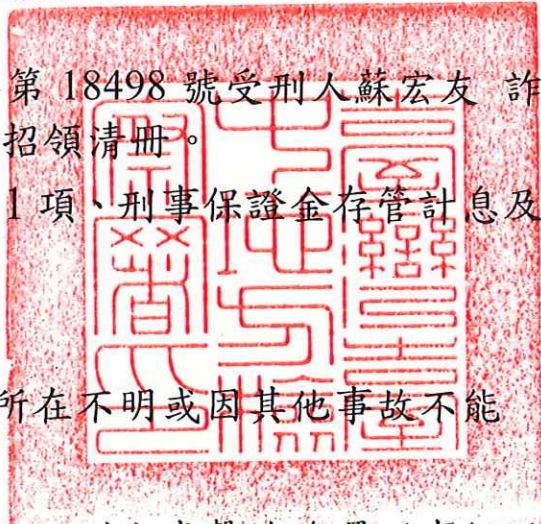 第 18498 號受刑人蘇宏友 詐
招領清冊。
1 項、刑事保證金存管計息及
所在不明或因其他事故不能